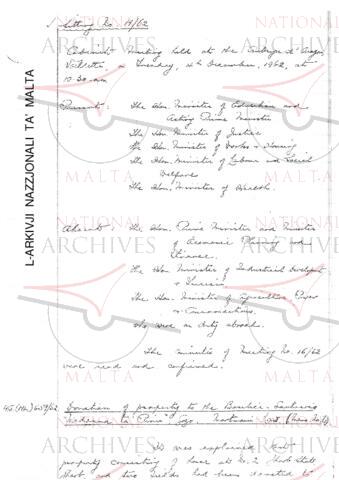 Sitting No. 17/62
Cabinet Meeting held at the Auberge d'Aragon
Valletta, on Tuesday, 4th December, 1962, at
10.30 am
Present: The Hon. Minister of Education and
Acting Prime Minister
The Hon. Minister of Justice
The Hon. Minister of Works & Housing
The Hon. Minister of Labour and Social
Welfare
The Hon. Minister of Health.
Absent: The Hon. Prime Minister and Minister
of Economic Planning and
Finance.
The Hon. Minister of Industrial Development
& Tourism
The Hon. Minister of Agriculture, Power
& Communications.
who were on duty abroad.
The minutes of Meeting No. 16/62
were read and confirmed.
Donation of property to the
Madonna ta' Pinu Gozo.
It was explained that
property consisting of house at No. 2
and two fields had been donated to
L-ARKIVJI NAZZJONALI TA' MALTA
NATIONAL
ARCHIVES
MALTA